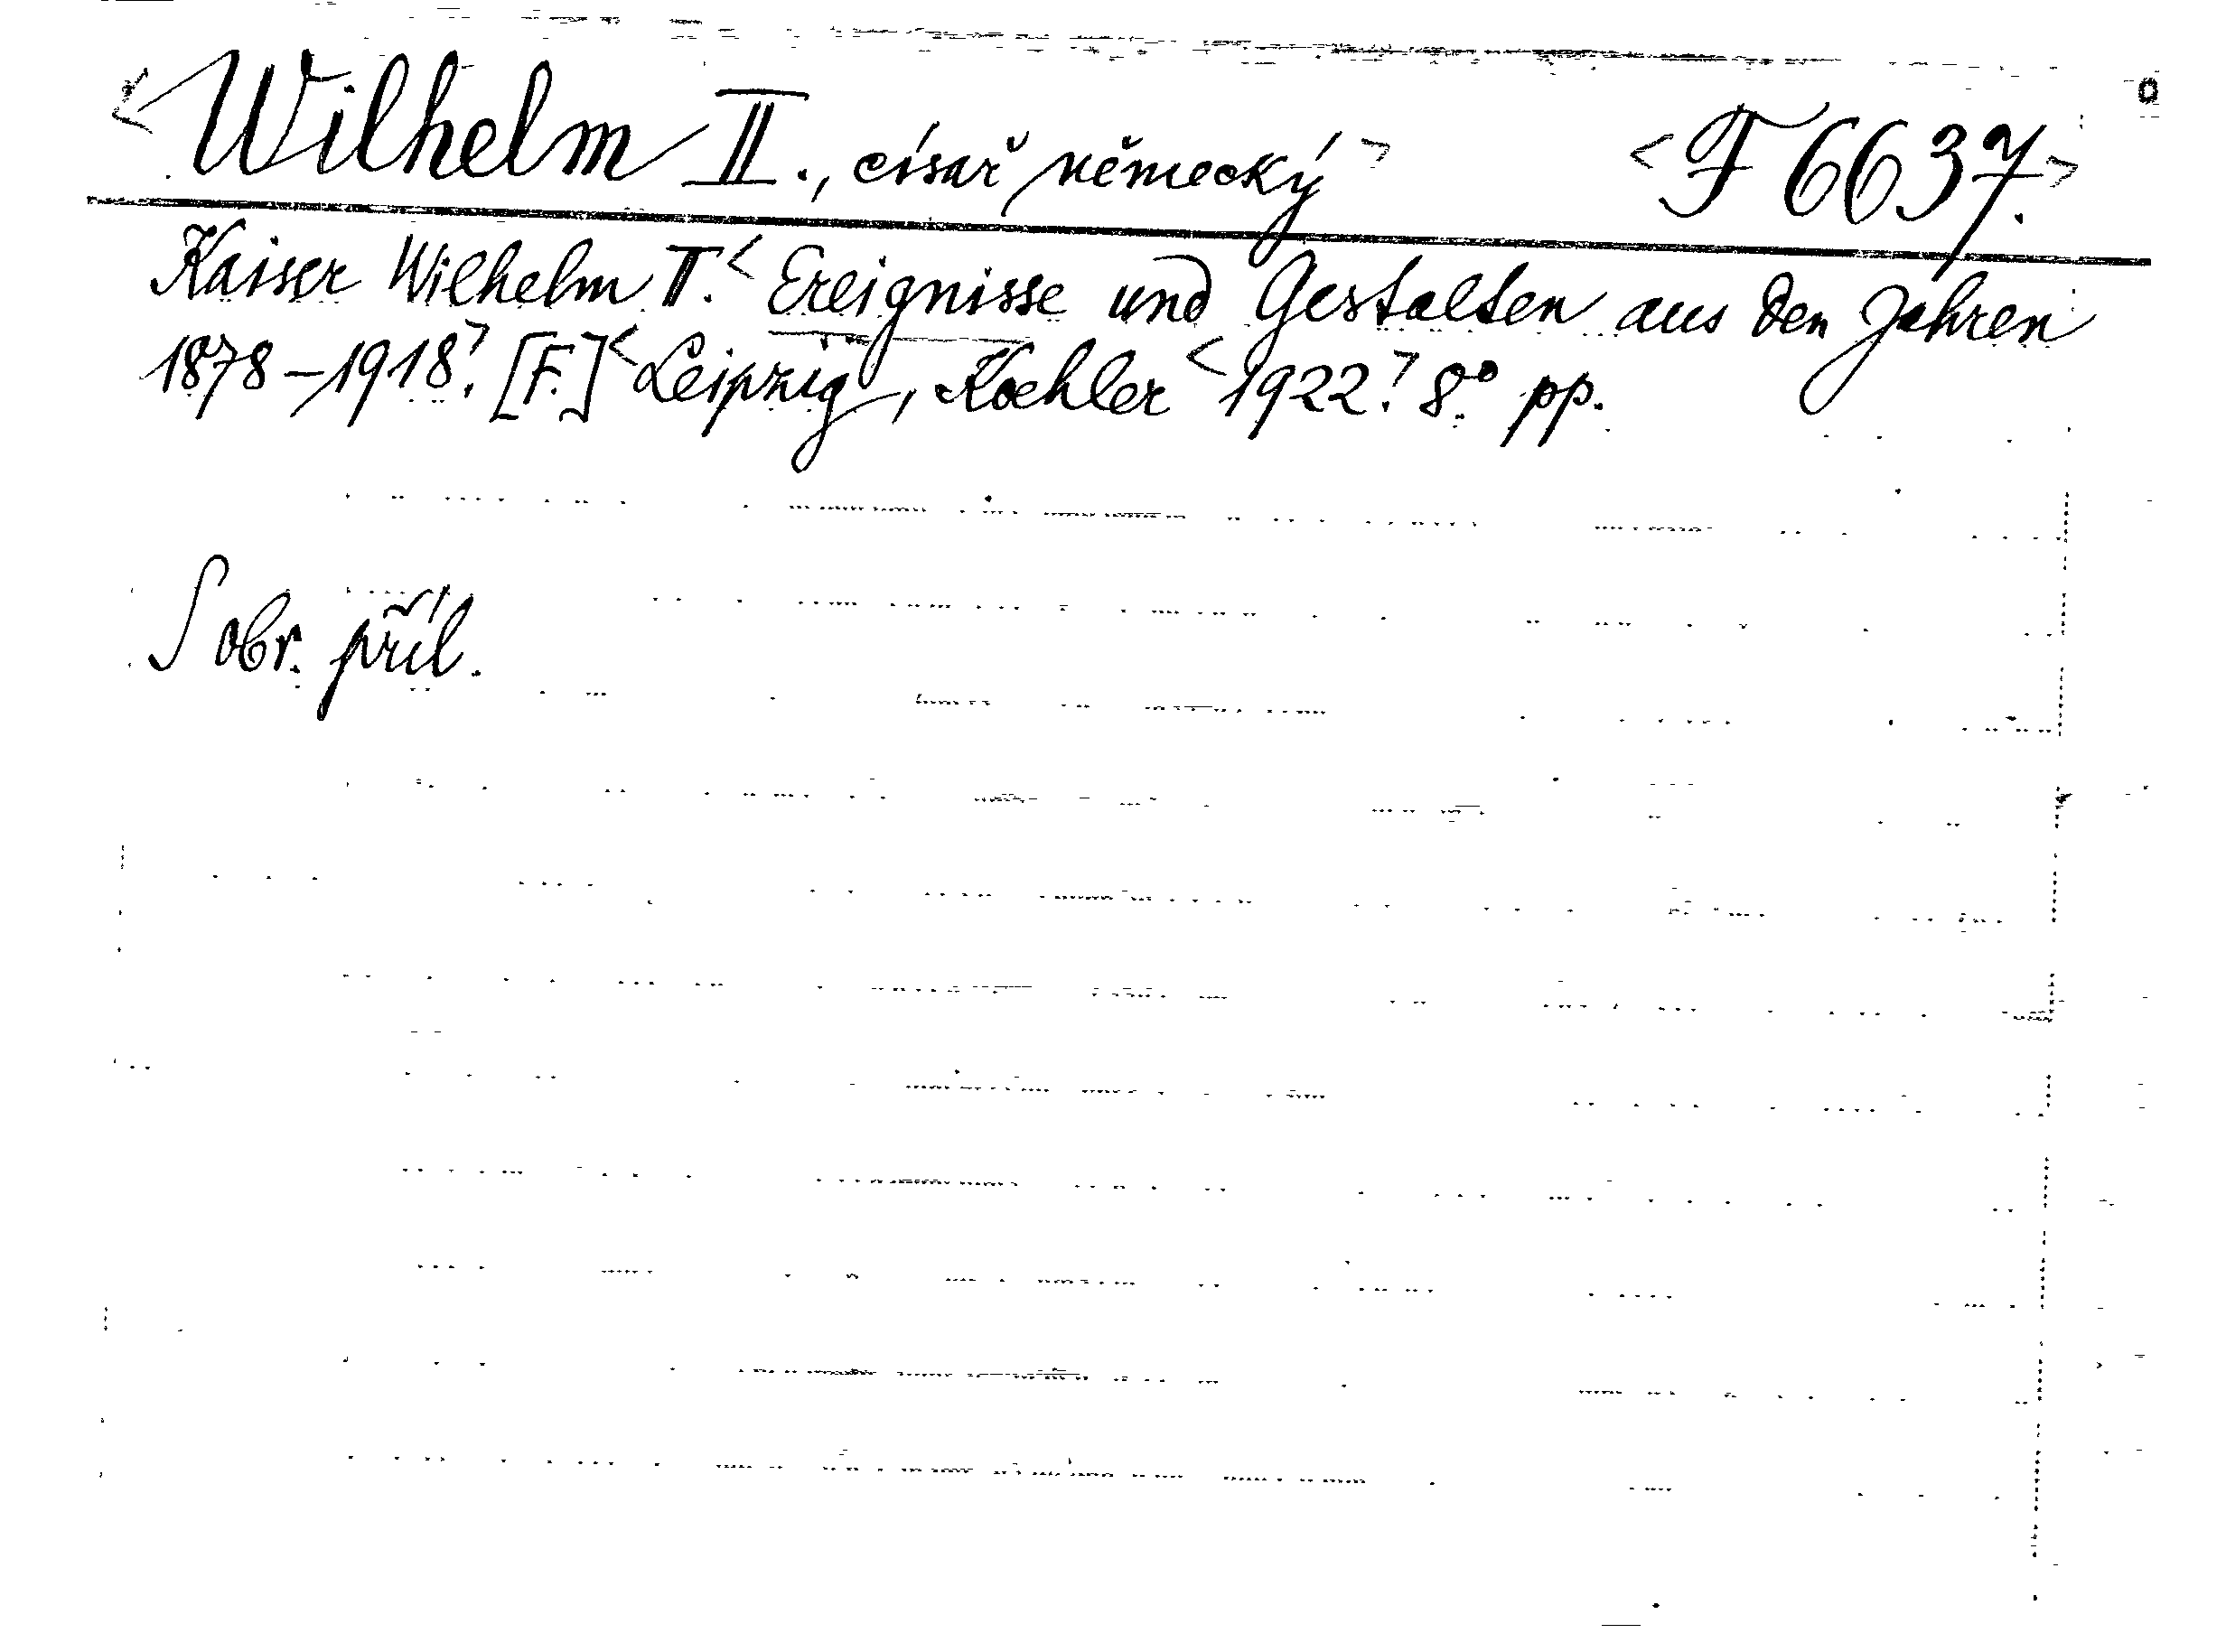 <Wilhelm II., císař německý> <F 6637.>
Kaiser Wilhelm II.<Ereignisse und Gestalten aus den Jahren
1878-1918.> [F.] <Leipzig, Koehler <1922.> 8° pp.
S obr. příl.